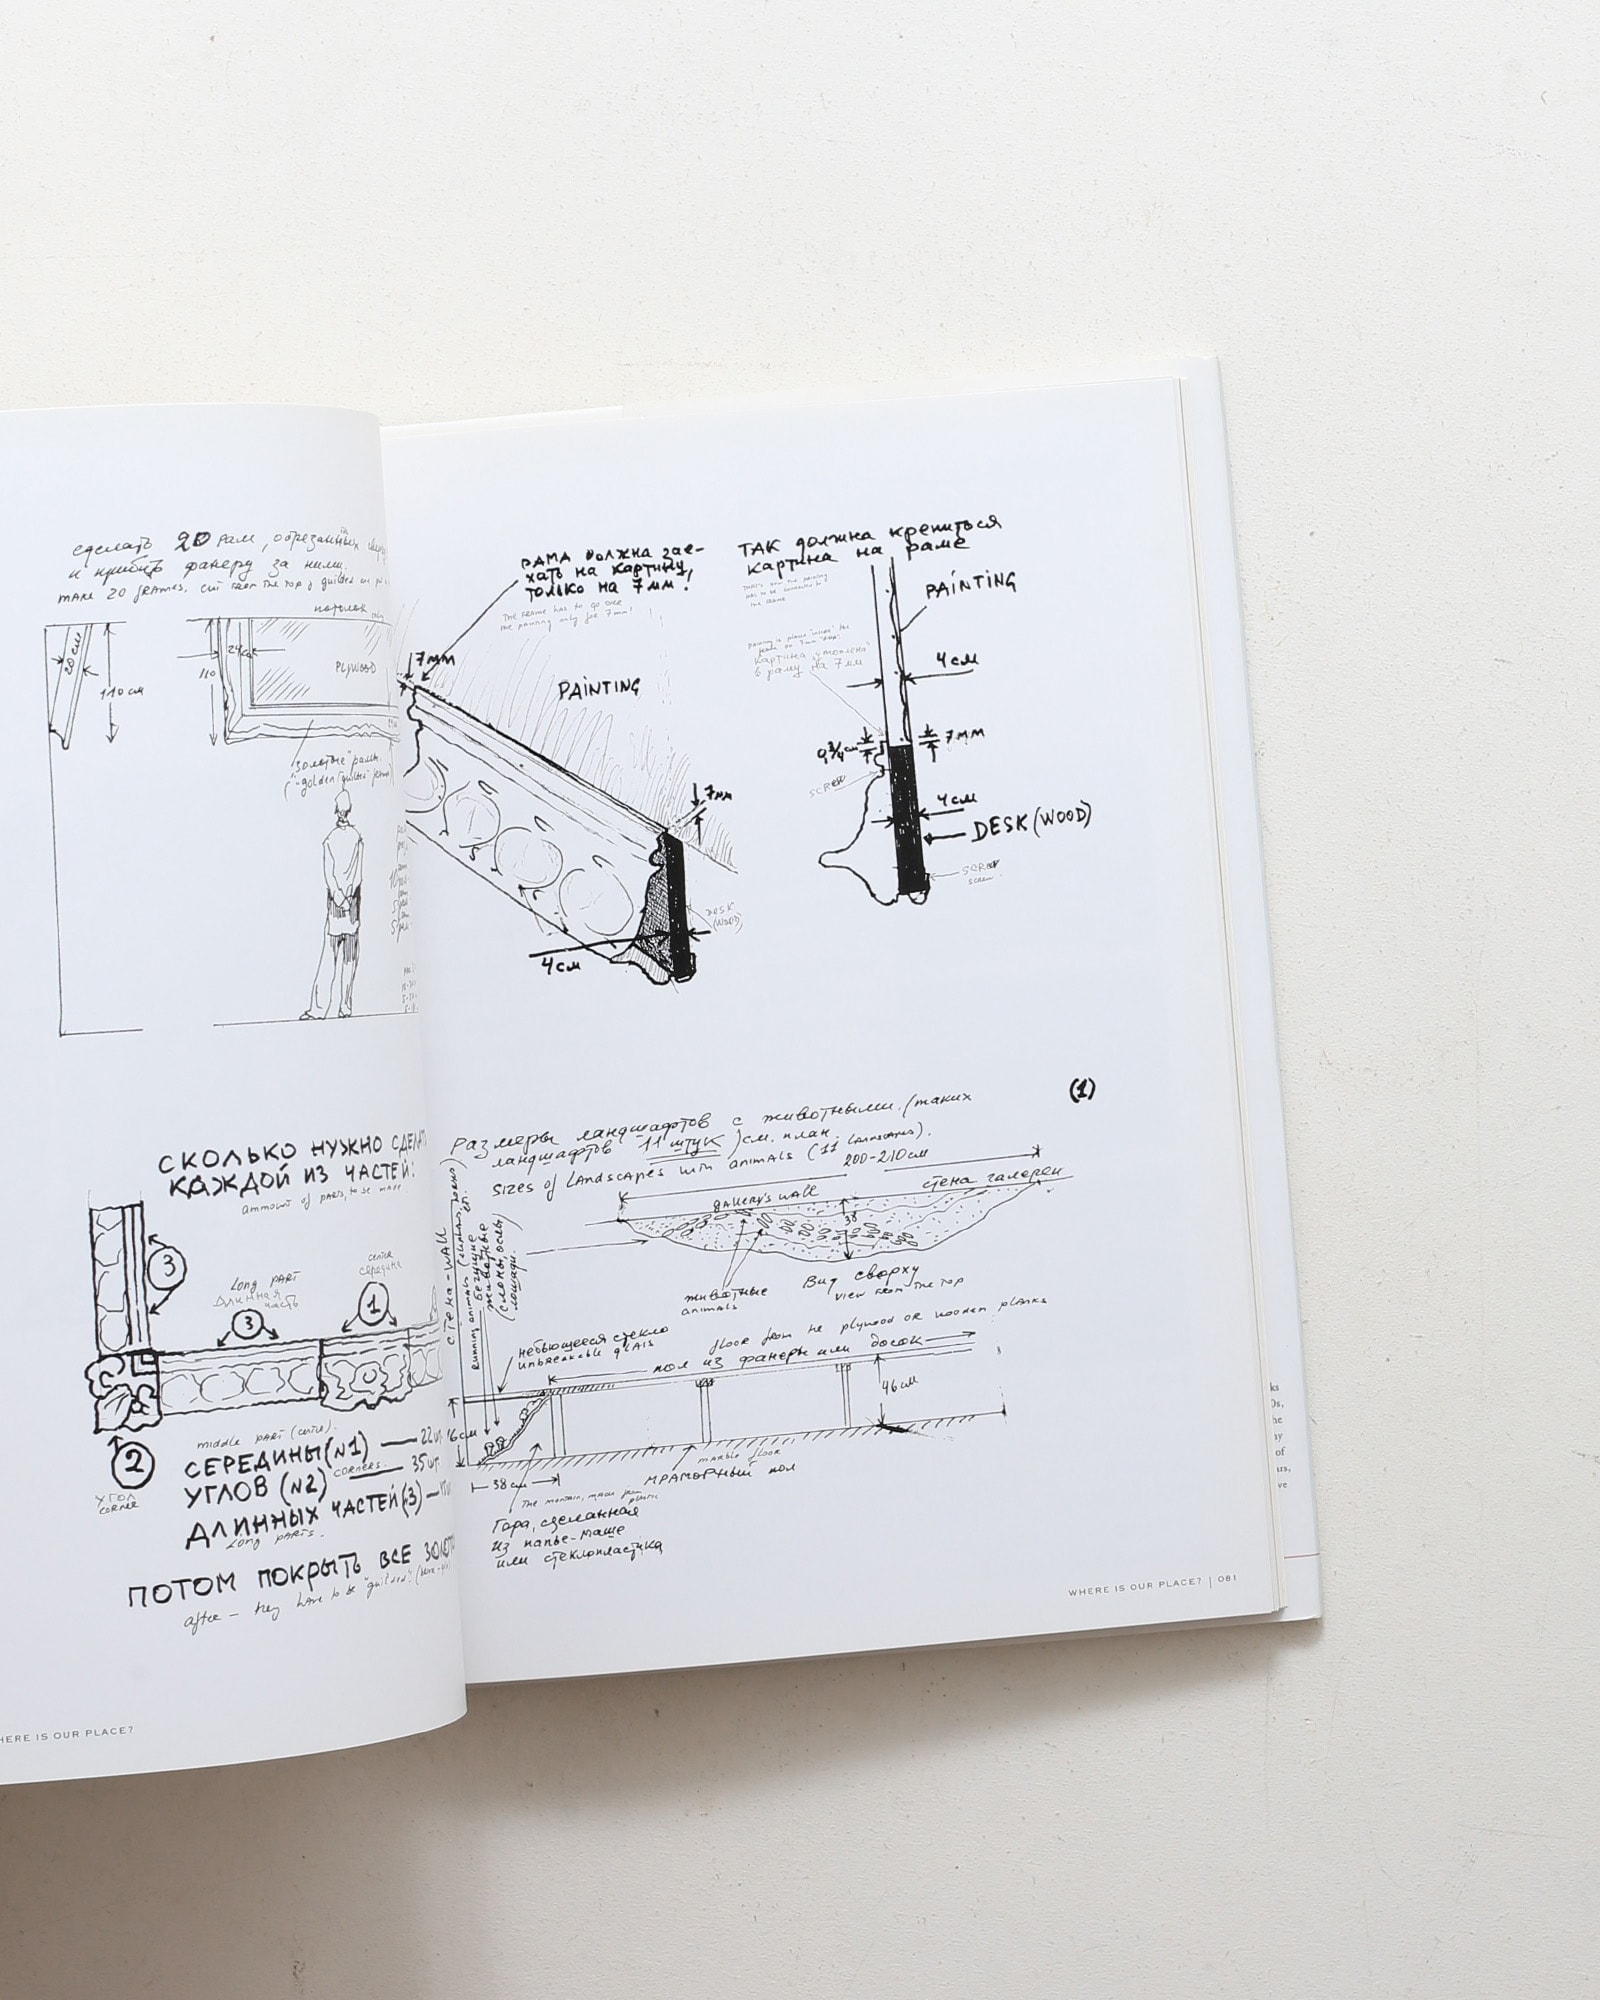 сделать 20 рам, обрезанных
и прибить фанеру за ними.
make 20 frames, cut from the top of guilded
потолок
20 см
110 см
110
24 см
PLYWOOD
"золотые" рамы.
("golden/guilded"
СКОЛЬКО НУЖНО
КАЖДОЙ ИЗ ЧАСТЕЙ:
ammount of parts, to be made
3
Long part
длинная
часть
3
center
середина
1
2
угол
corner
middle part (center).
СЕРЕДИНЫ (N1) — 22
УГЛОВ (N2) — 35 шт.
corners.
ДЛИННЫХ ЧАСТЕЙ (3) —
Long parts.
ПОТОМ ПОКРЫТЬ ВСЕ
after — they have to be "guilded"!
HERE IS OUR PLACE?
РАМА ДОЛЖНА ЗАЕ-
ХАТЬ НА КАРТИНУ,
ТОЛЬКО НА 7 мм!
The frame has to go over
the painting only for 7mm!
7 мм
PAINTING
7 мм
DESK
(WOOD)
4 см
ТАК должна крепиться
картина на раме
That's how the painting
has to be connected to
the frame
PAINTING
картина "утоплена"
в раму на 7 мм
4 см
7 мм
screw
4 см
DESK (WOOD)
screw
screw.
(1)
Размеры ландшафтов с животными. (таких
ландшафтов 11 штук) см. план.
sizes of landscapes with animals (11 landscapes).
200-210 см
gallery's wall
стена галереи
38
животные
animals
Вид сверху
view from the top
стена - wall
бегущие
животные
(слоны, ослы,
лошади.
небьющееся стекло
unbreakable glass
floor from the plywood or wooden planks
пол из фанеры или досок
46 см
46 см
38 см
marble floor
мраморный пол
Гора, сделанная
из папье-маше
или стеклопластика
WHERE IS OUR PLACE? | 081